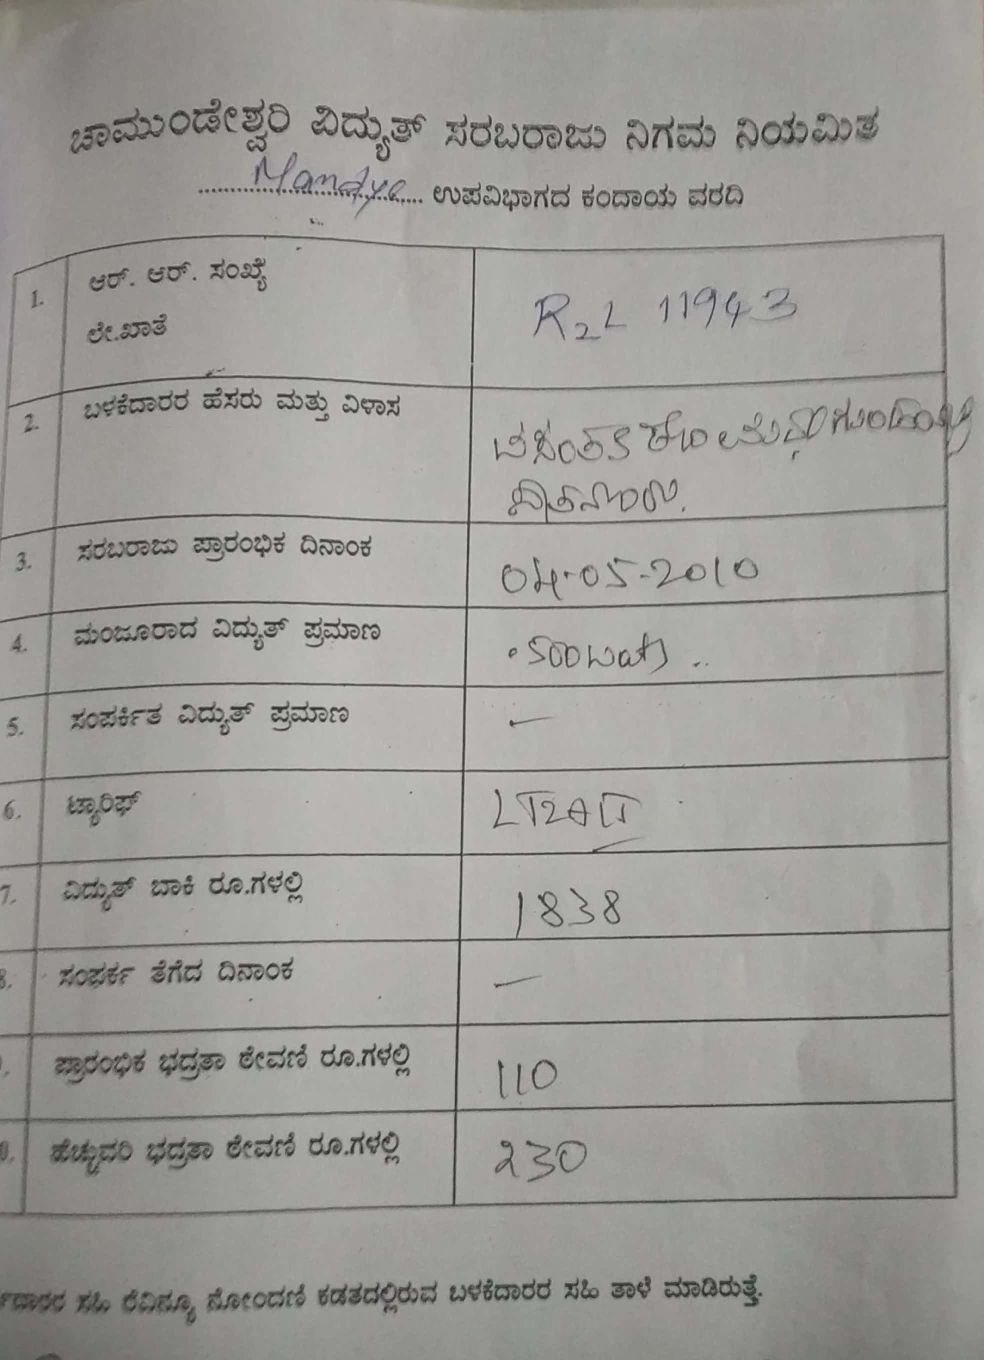 ಚಾಮುಂಡೇಶ್ವರಿ ವಿದ್ಯುತ್ ಸರಬರಾಜು ನಿಗಮ ನಿಯಮಿತ
Mandya ಉಪವಿಭಾಗದ ಕಂದಾಯ ವರದಿ
1. ಆರ್. ಆರ್. ಸಂಖ್ಯೆ
ಲೇ.ಖಾತೆ
R2L 11943
2. ಬಳಕೆದಾರರ ಹೆಸರು ಮತ್ತು ವಿಳಾಸ
3. ಸರಬರಾಜು ಪ್ರಾರಂಭಿಕ ದಿನಾಂಕ
04-05-2010
4. ಮಂಜೂರಾದ ವಿದ್ಯುತ್ ಪ್ರಮಾಣ
500 watts
5. ಸಂಪರ್ಕಿತ ವಿದ್ಯುತ್ ಪ್ರಮಾಣ
–
6. ಟ್ಯಾರಿಫ್
7. ವಿದ್ಯುತ್ ಬಾಕಿ ರೂ.ಗಳಲ್ಲಿ
1838
8. ಸಂಪರ್ಕ ತೆಗೆದ ದಿನಾಂಕ
–
ಪ್ರಾರಂಭಿಕ ಭದ್ರತಾ ಠೇವಣಿ ರೂ.ಗಳಲ್ಲಿ
110
ಹೆಚ್ಚುವರಿ ಭದ್ರತಾ ಠೇವಣಿ ರೂ.ಗಳಲ್ಲಿ
230
ಸಹಿ ರೆವಿನ್ಯೂ ನೋಂದಣಿ ಕಡತದಲ್ಲಿರುವ ಬಳಕೆದಾರರ ಸಹಿ ತಾಳೆ ಮಾಡಿರುತ್ತೆ.